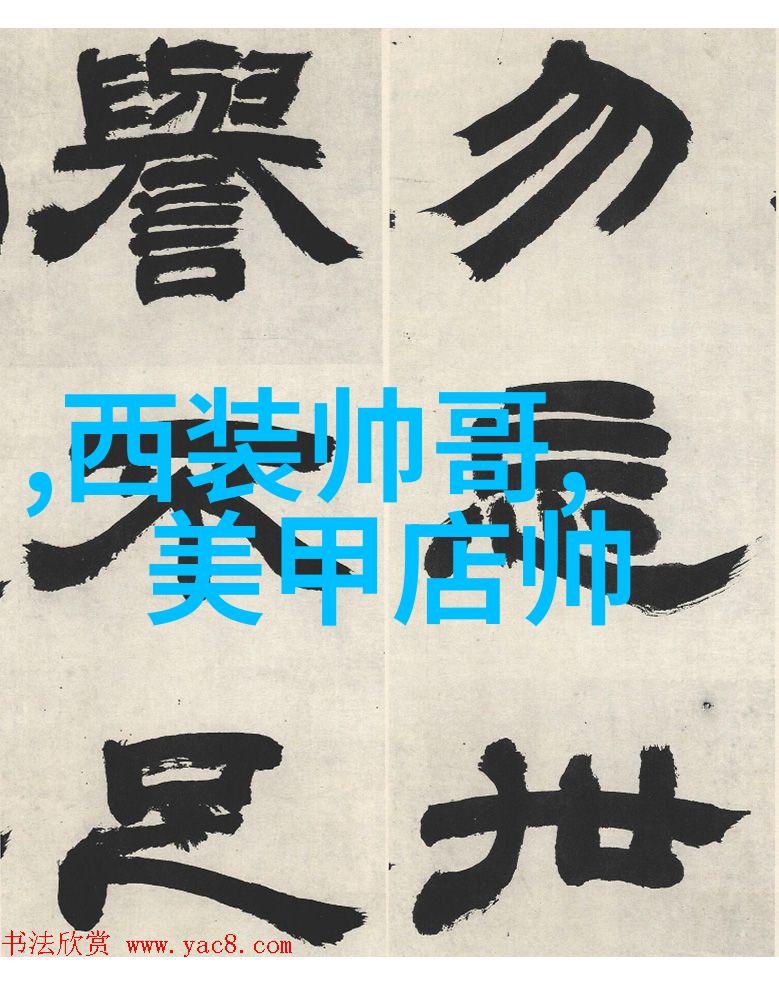 勿世
譽不足
,西装帅哥,
美甲店帅
书法欣赏 www.yac8.com